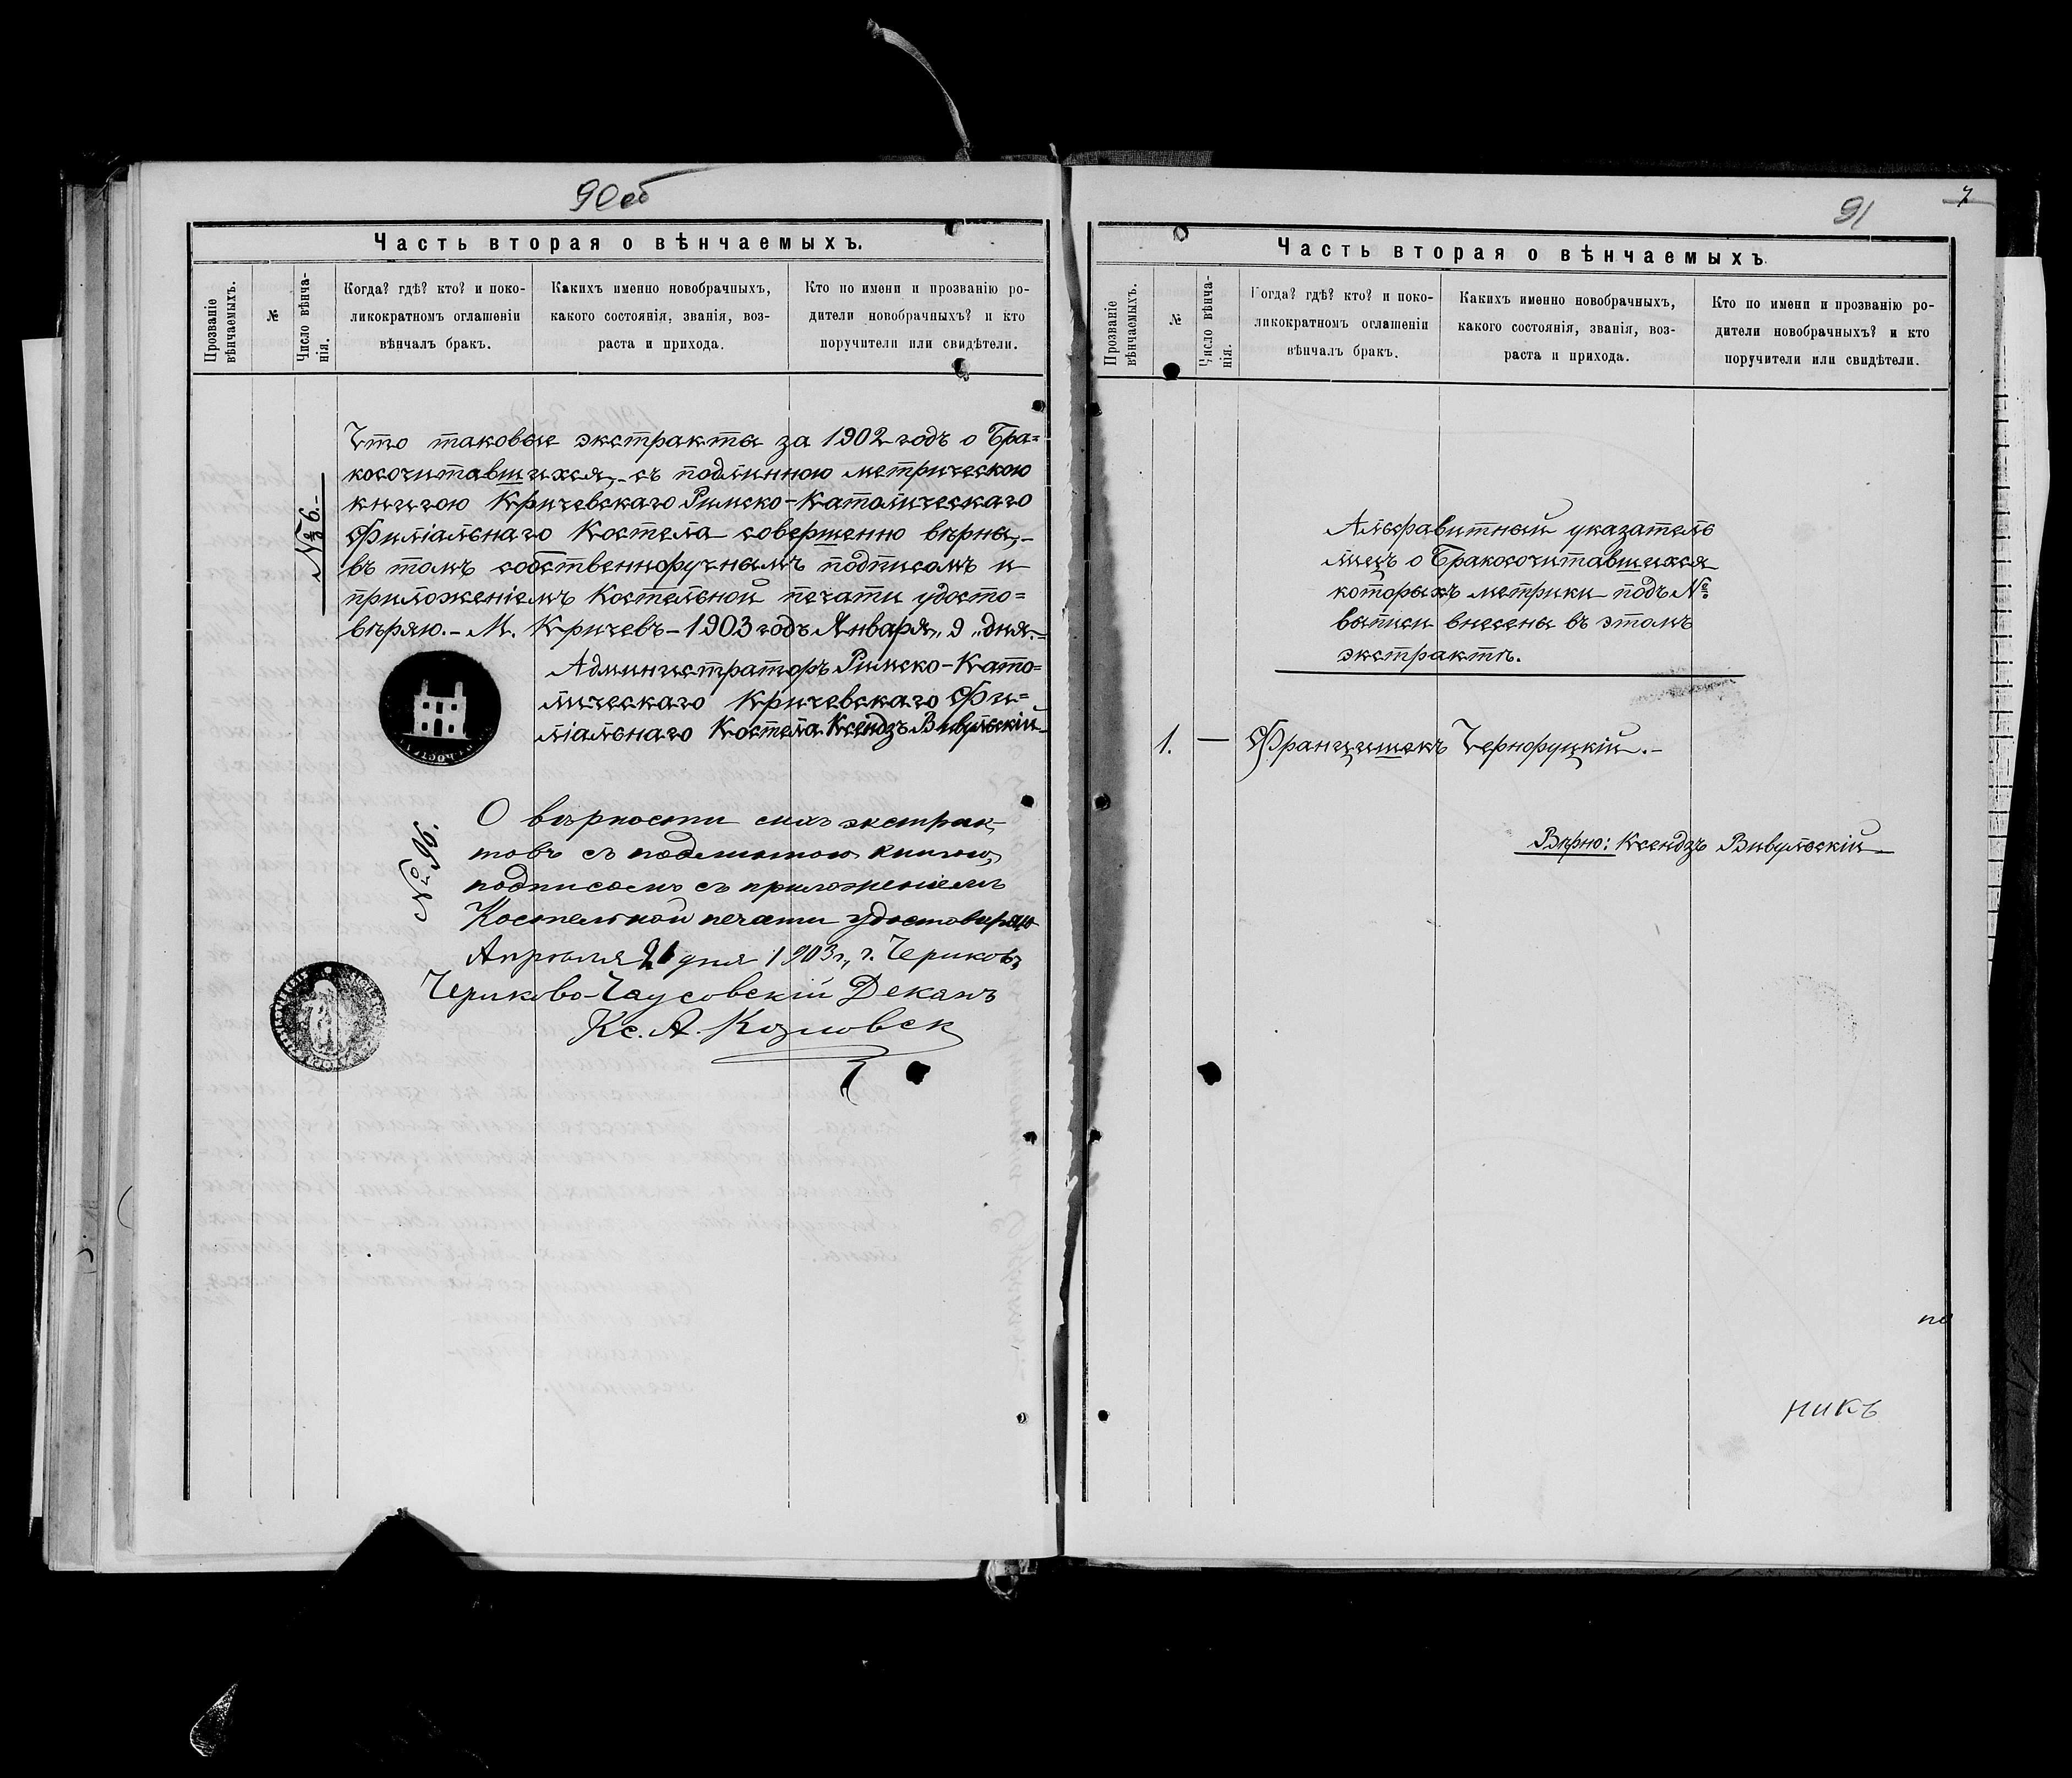 90 об
Часть вторая о вѣнчаемыхъ.
Прозваніе
вѣнчаемыхъ.
№
Число вѣнча-
нія.
Когда? гдѣ? кто? и поко-
ликократномъ оглашеніи
вѣнчалъ бракъ.
Какихъ именно новобрачныхъ,
какого состоянія, званія, воз-
раста и прихода.
Кто по имени и прозванію ро-
дители новобрачныхъ? и кто
поручители или свидѣтели.
№ 6.-
Что таковые экстракты за 1902 годъ о Бра=
косочитавшихся,- съ подлинною метрическою
книгою Кричевскаго Римско-Католическаго
Филіальнаго Костела совершенно вѣрны,-
въ томъ собственноручнымъ подписомъ и
приложеніемъ Костельной печати удосто=
вѣряю.- М. Кричевъ - 1903 годъ Января „ 9 „ дня.=
Администраторъ Римско-Като=
лическаго Кричевскаго Фи=
ліальнаго Костела Ксендзъ Вивульскій
№ 96.
О вѣрности сихъ экстрак-
товъ съ подлинною книгою,
подписомъ съ приложеніемъ
Костельной печати удостовѣряю
Апрѣля 21 дня 1903 г., г. Чериковъ
Чериково-Чаусовскій Деканъ
Кс. А. Козловск
91
7
Часть вторая о вѣнчаемыхъ
Прозваніе
вѣнчаемыхъ.
№
Число вѣнча-
нія.
Когда? гдѣ? кто? и поко-
ликократномъ оглашеніи
вѣнчалъ бракъ.
Какихъ именно новобрачныхъ,
какого состоянія, званія, воз-
раста и прихода.
Кто по имени и прозванію ро-
дители новобрачныхъ? и кто
поручители или свидѣтели.
Альфавитный указатель
лицъ о Бракосочитавшихся
которыхъ метрики подъ №
выписи внесены въ этомъ
экстрактѣ.
1. — Францишекъ Черноруцкій.-
Вѣрно: Ксендзъ Вивульскій
по
никъ